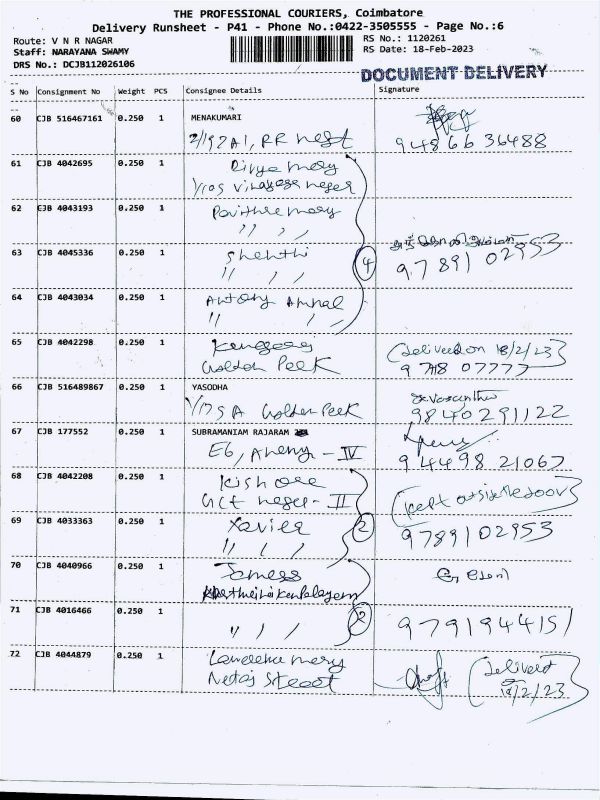 THE PROFESSIONAL COURIERS, Coimbatore
Delivery Runsheet - P41 - Phone No.:0422-3505555 - Page No.:6
Route: V N R NAGAR
RS No.: 1120261
Staff: NARAYANA SWAMY
RS Date: 18-Feb-2023
DRS No.: DCJB112026106
DOCUMENT DELIVERY
S No Consignment No Weight PCS Consignee Details Signature
60 CJB 516467161 0.250 1 MENAKUMARI
2/192A1, RR nest 94866 36488
61 CJB 4042695 0.250 1 Divya mary
1/105 Vinayaga neger
62 CJB 4043193 0.250 1 Pavithra mary
" , ,
63 CJB 4045336 0.250 1 Shenthi
" , , 4 97891 02953
64 CJB 4043034 0.250 1 Antony Ammal
" ,
65 CJB 4042298 0.250 1 (delivered on 18/2/23)
Golden Peek 07777
66 CJB 516489867 0.250 1 YASODHA
1/175 A Golden Peek 9840291122
67 CJB 177552 0.250 1 SUBRAMANIAM RAJARAM
E6, - IV 94498 21067
68 CJB 4042208 0.250 1 Kishore
GCT neger - II (kept at side door)
69 CJB 4033363 0.250 1 Xavier 2 9789102953
" , ,
70 CJB 4040966 0.250 1 James
71 CJB 4016466 0.250 1 2
" , , 9791944151
72 CJB 4044879 0.250 1 Lawrence mary (delivered
Netaj Street 18/2/23)